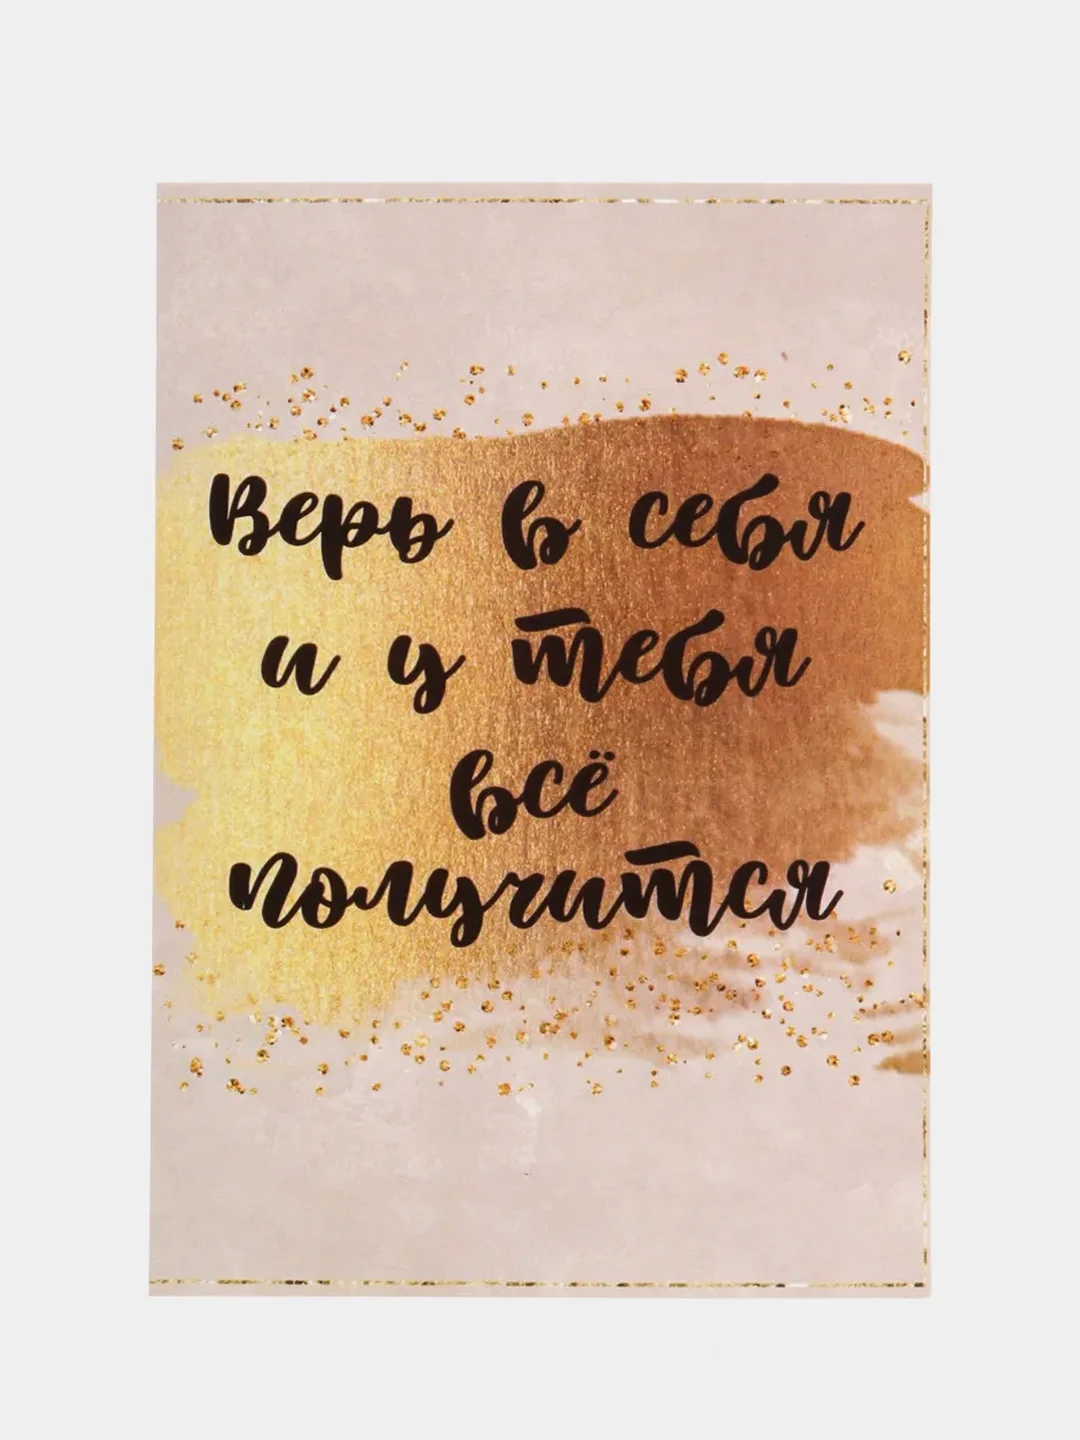 Верь в себя
и у тебя
всё
получится